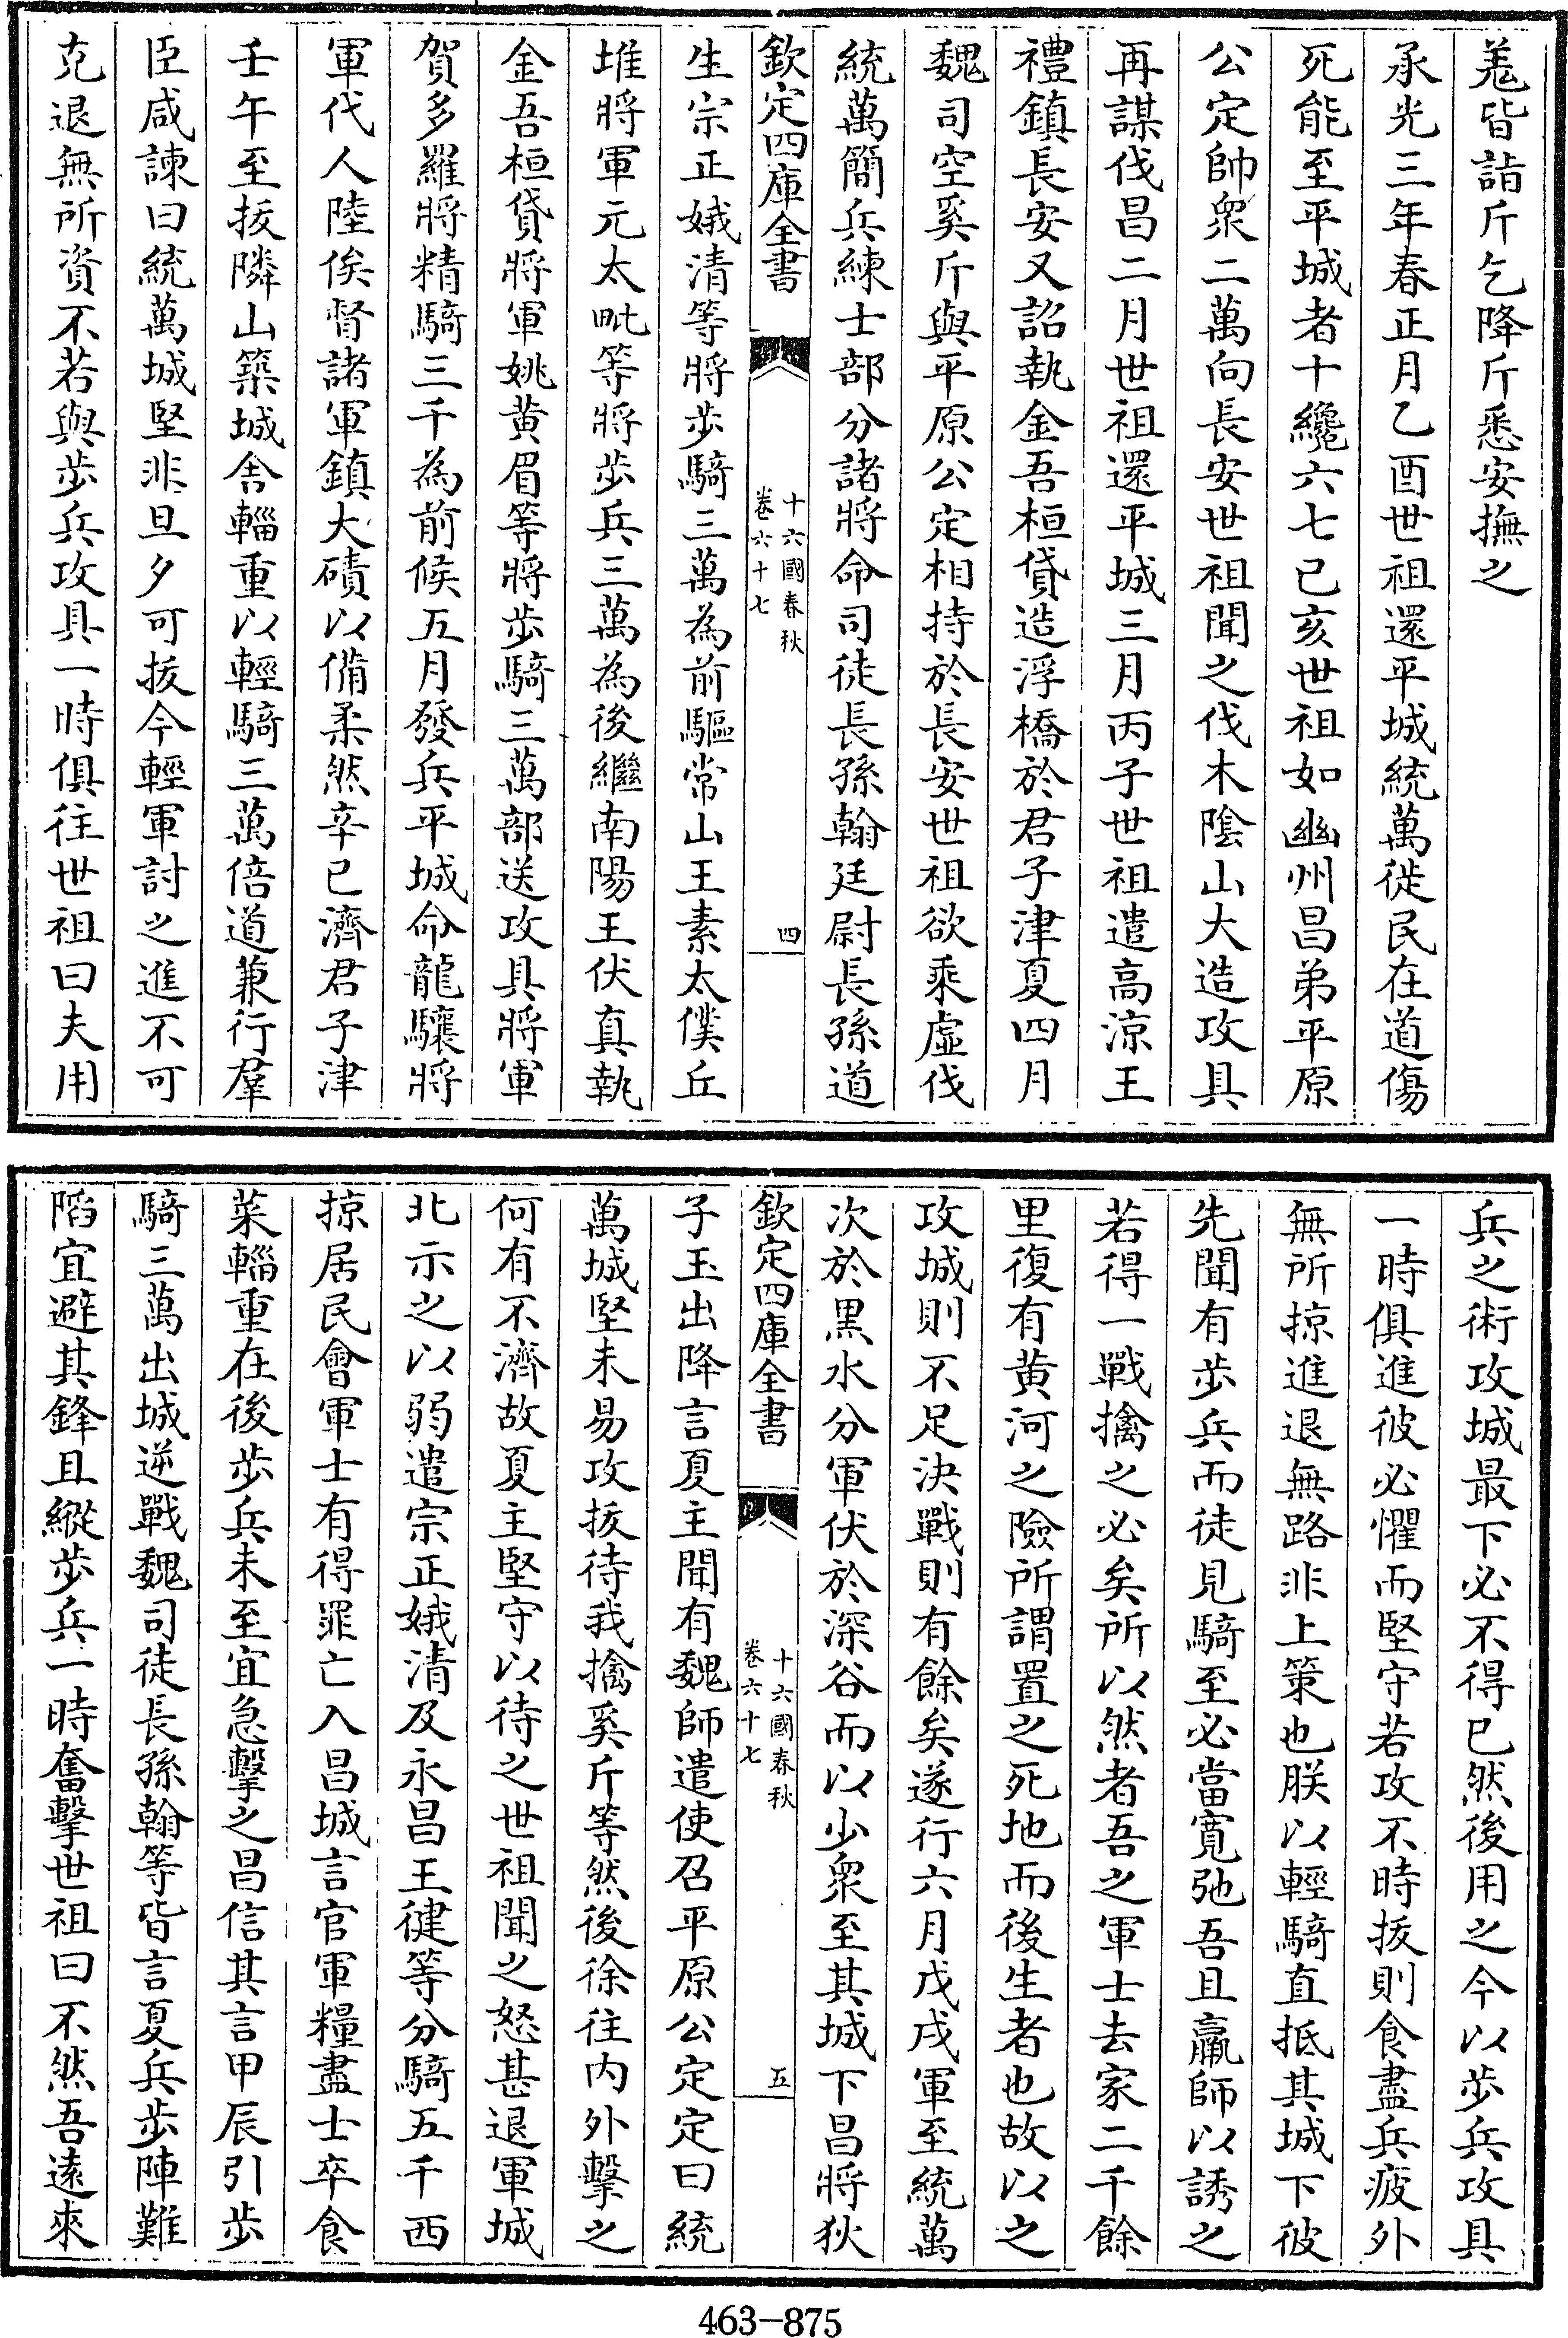 羗皆詣斤乞降斤悉安撫之
承光三年春正月乙酉世祖還平城統萬徙民在道傷
死能至平城者十纔六七己亥世祖如幽州昌弟平原
公定帥衆二萬向長安世祖聞之伐木隂山大造攻具
再謀伐昌二月世祖還平城三月丙子世祖遣高涼王
禮鎮長安又詔執金吾桓貸造浮橋於君子津夏四月
魏司空奚斤與平原公定相持於長安世祖欲乘虛伐
統萬簡兵練士部分諸將命司徒長孫翰廷尉長孫道
欽定四庫全書
十六國春秋
卷六十七
四
生宗正娥清等將步騎三萬為前驅常山王素太僕丘
堆將軍元太毗等將步兵三萬為後繼南陽王伏真執
金吾桓貸將軍姚黄眉等將步騎三萬部送攻具將軍
賀多羅將精騎三千為前候五月發兵平城命龍驤將
軍代人陸俟督諸軍鎮大磧以備柔然辛巳濟君子津
壬午至拔隣山築城舍輜重以輕騎三萬倍道兼行羣
臣咸諫曰統萬城堅非旦夕可拔今輕軍討之進不可
克退無所資不若與步兵攻具一時俱往世祖曰夫用
兵之術攻城最下必不得已然後用之今以步兵攻具
一時俱進彼必懼而堅守若攻不時拔則食盡兵疲外
無所掠進退無路非上策也朕以輕騎直抵其城下彼
先聞有步兵而徒見騎至必當寛弛吾且羸師以誘之
若得一戰擒之必矣所以然者吾之軍士去家二千餘
里復有黄河之險所謂置之死地而後生者也故以之
攻城則不足決戰則有餘矣遂行六月戊戌軍至統萬
次於黑水分軍伏於深谷而以少衆至其城下昌將狄
欽定四庫全書
十六國春秋
卷六十七
五
子玉出降言夏主聞有魏師遣使召平原公定定曰統
萬城堅未易攻拔待我擒奚斤等然後徐往内外擊之
何有不濟故夏主堅守以待之世祖聞之怒甚退軍城
北示之以弱遣宗正娥清及永昌王健等分騎五千西
掠居民會軍士有得罪亡入昌城言官軍糧盡士卒食
菜輜重在後步兵未至宜急擊之昌信其言甲辰引步
騎三萬出城逆戰魏司徒長孫翰等皆言夏兵步陣難
陷宜避其鋒且縱步兵一時奮擊世祖曰不然吾遠來
463-875